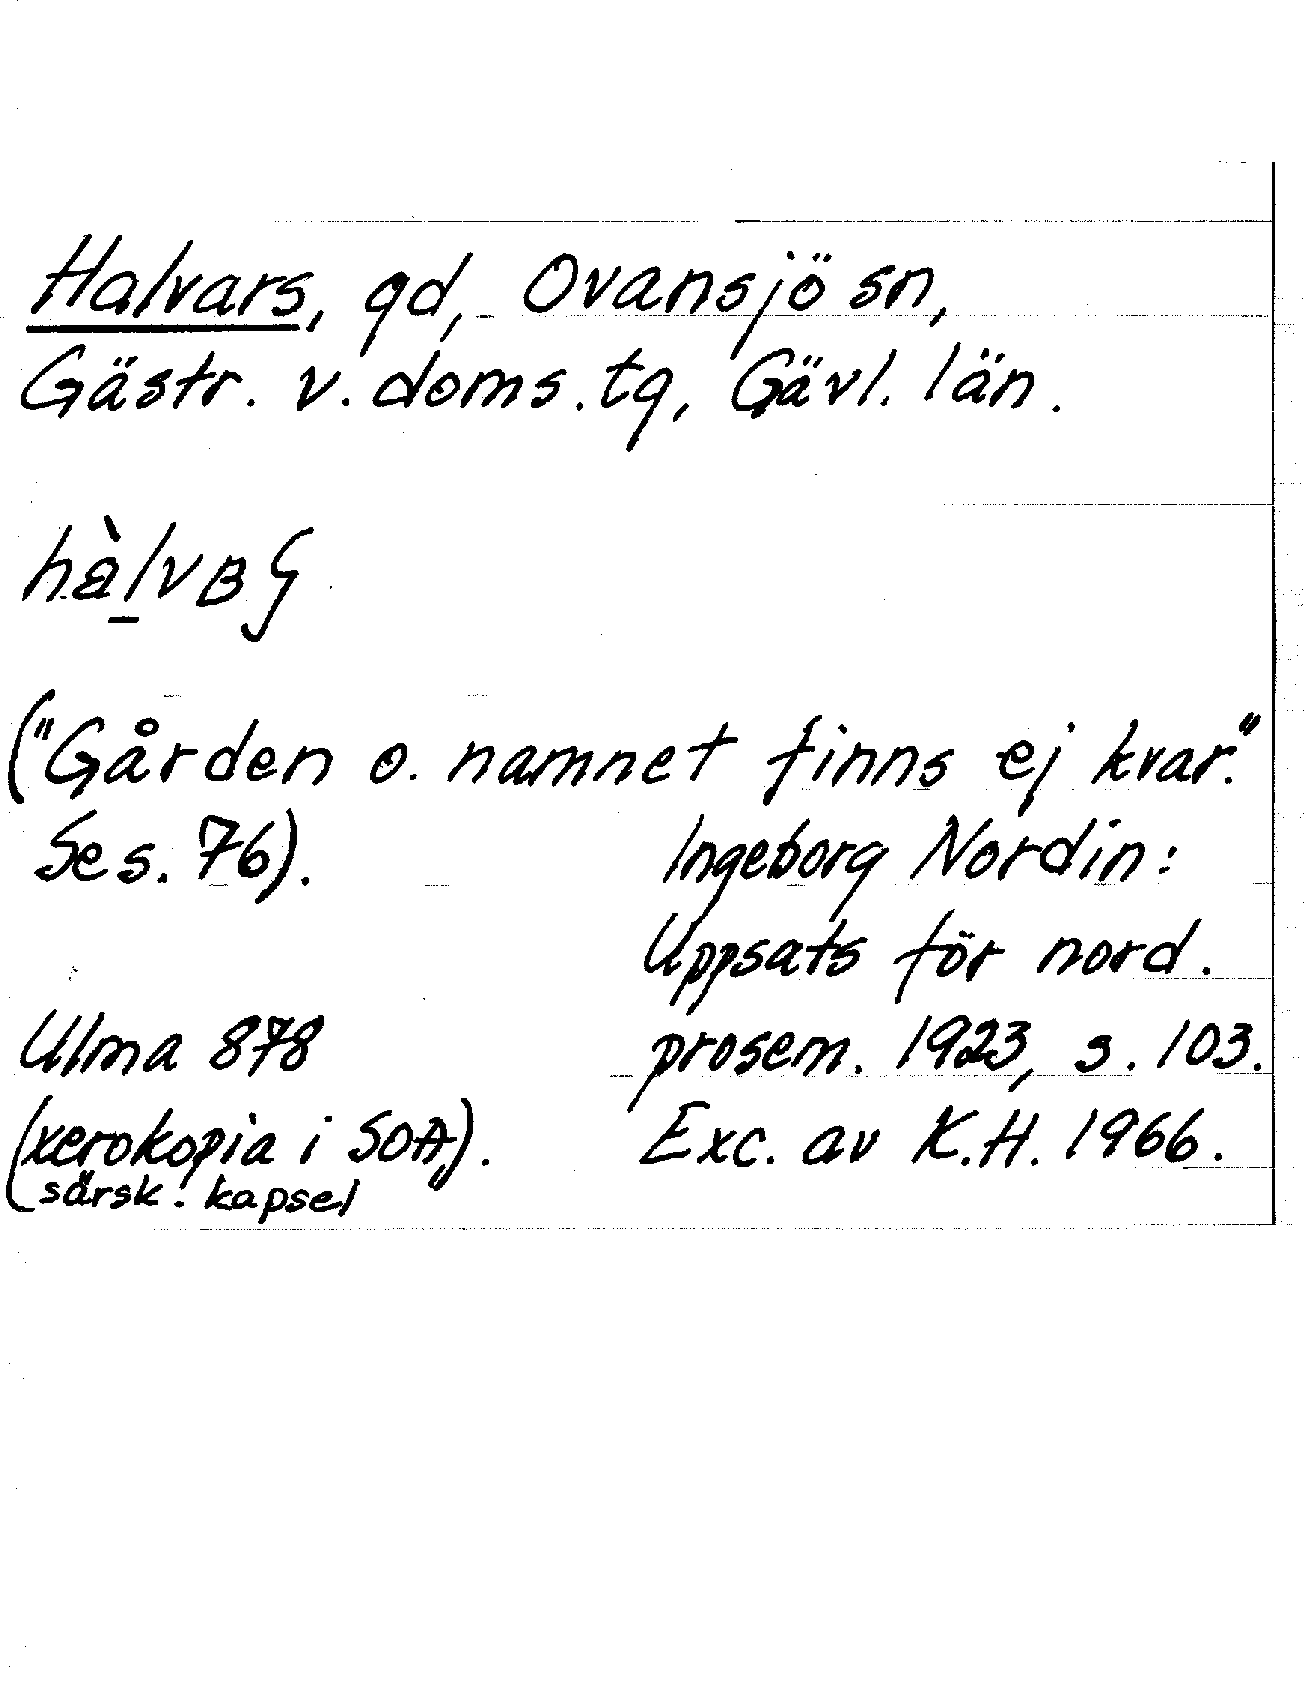 Halvars, gd, Ovansjö sn,
Gästr. v. doms. tg, Gävl. län.
("Gården o. namnet finns ej kvar."
Se s. 76).
Ingeborg Nordin:
Uppsats för nord.
prosem. 1923, s. 103.
Exc. av K.H. 1966.
Ulma 878
(xerokopia i SOA).
särsk. kapsel